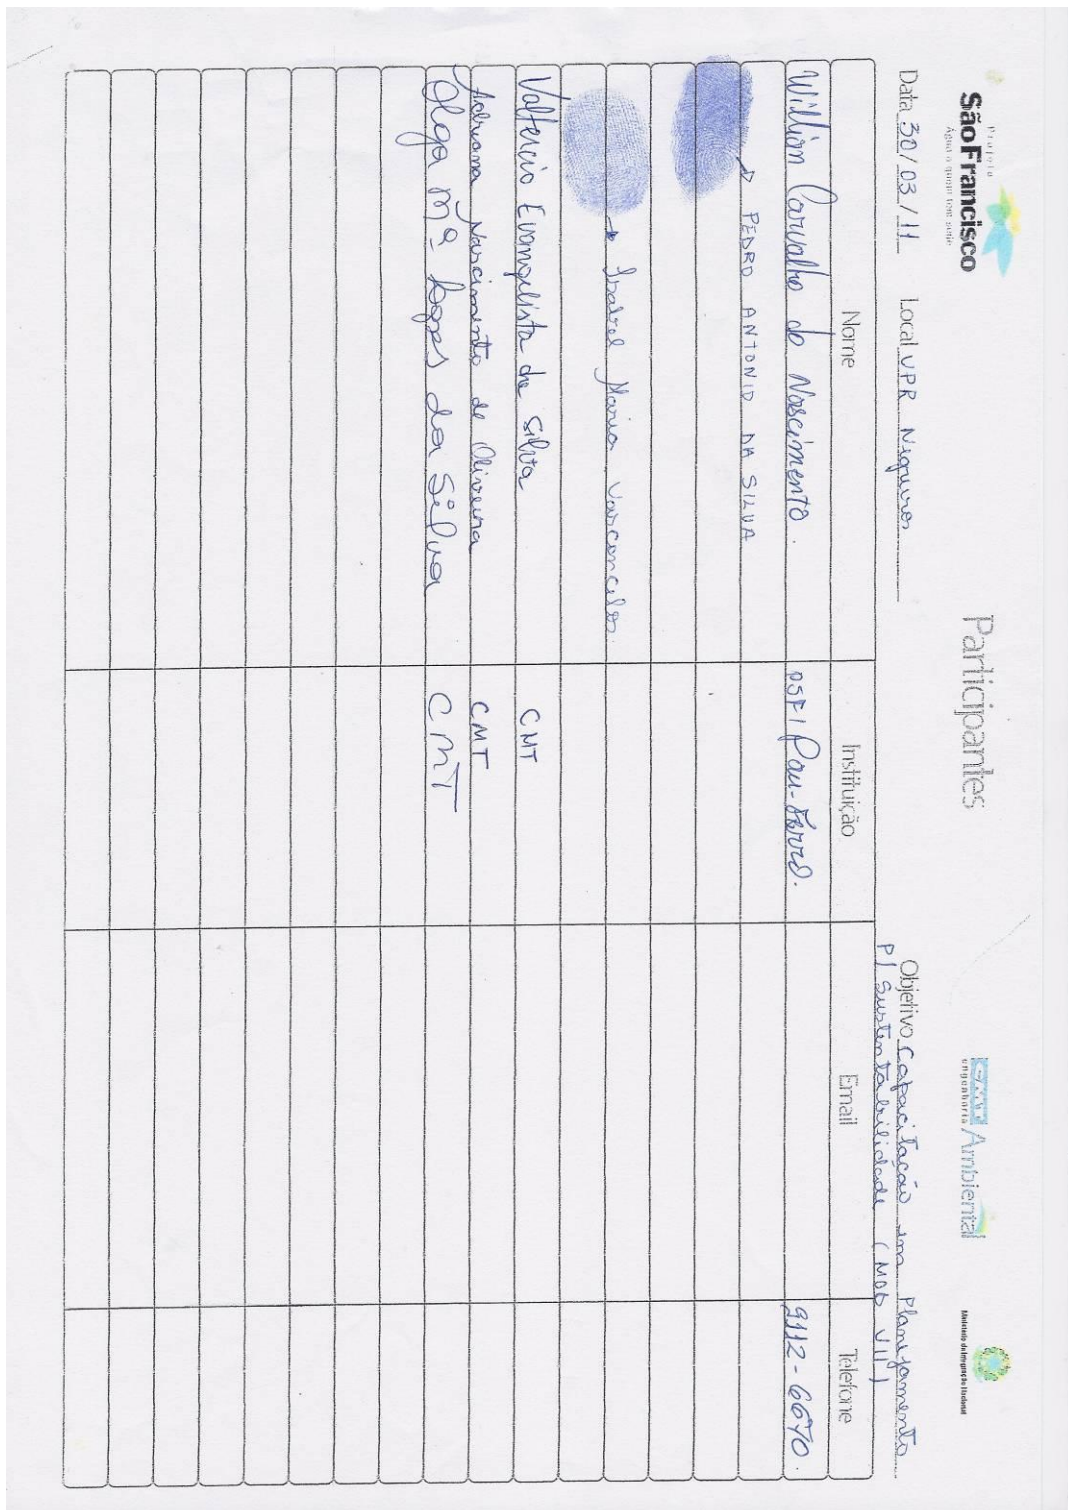 Projeto
São Francisco
Água a quem tem sede
Participantes
CMT Ambiental
engenharia
Ministério da Integração Nacional
Data 30/03/11 Local VPR Negreiros Objetivo Capacitação em Planejamento
P/ Sustentabilidade (MOD VII)
Nome Instituição Email Telefone
Willian Carvalho do Nascimento. PSF/Pau-Ferro. 9112-6670.
→ PEDRO ANTONIO DA SILVA
→ Isabel Maria Vasconcelos.
Valtercio Evangelista da Silva CMT
Adriana Nascimento de Oliveira CMT
Olga Mª Lopes da Silva CMT